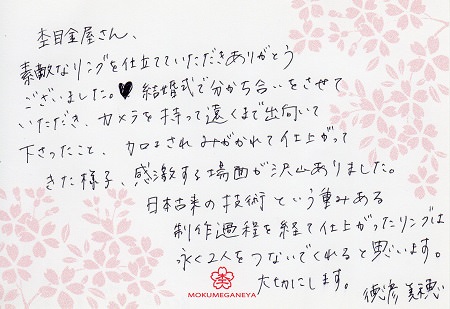 杢目金屋さん、
素敵なリングを仕立てていただきありがとう
ございました。♥ 結婚式で分かち合いをさせて
いただき、カメラを持って遠くまで出向いて
下さったこと、加工されみがかれて仕上がって
きた様子、感激する場面が沢山ありました。
日本古来の技術という重みある
制作過程を経て仕上がったリングは
永く2人をつないでくれると思います。
大切にします。
徳彦 美穂
MOKUMEGANEYA